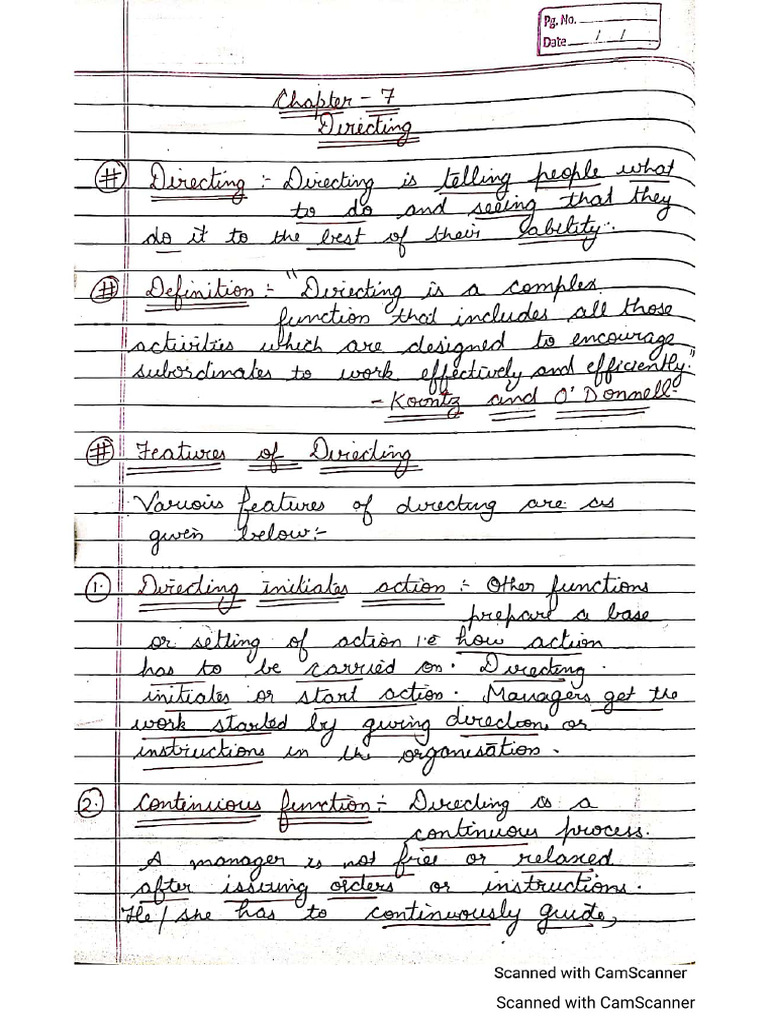 Pg. No.
Date / /
Chapter - 7
Directing
# Directing :- Directing is telling people what
to do and seeing that they
do it to the best of their ability.
# Definition :- "Directing is a complex
function that includes all those
activities which are designed to encourage
subordinates to work effectively and efficiently."
- Koontz and O'Donnell
# Features of Directing
Various features of directing are as
given below :-
1. Directing initiates action :- Other functions
prepare a base
or setting of action i.e how action
has to be carried on. Directing
initiates or start action. Managers get the
work started by giving direction or
instructions in the organisation.
2. Continuous function :- Directing is a
continuous process.
A manager is not free or relaxed
after issuing orders or instructions.
He/she has to continuously guide,
Scanned with CamScanner
Scanned with CamScanner